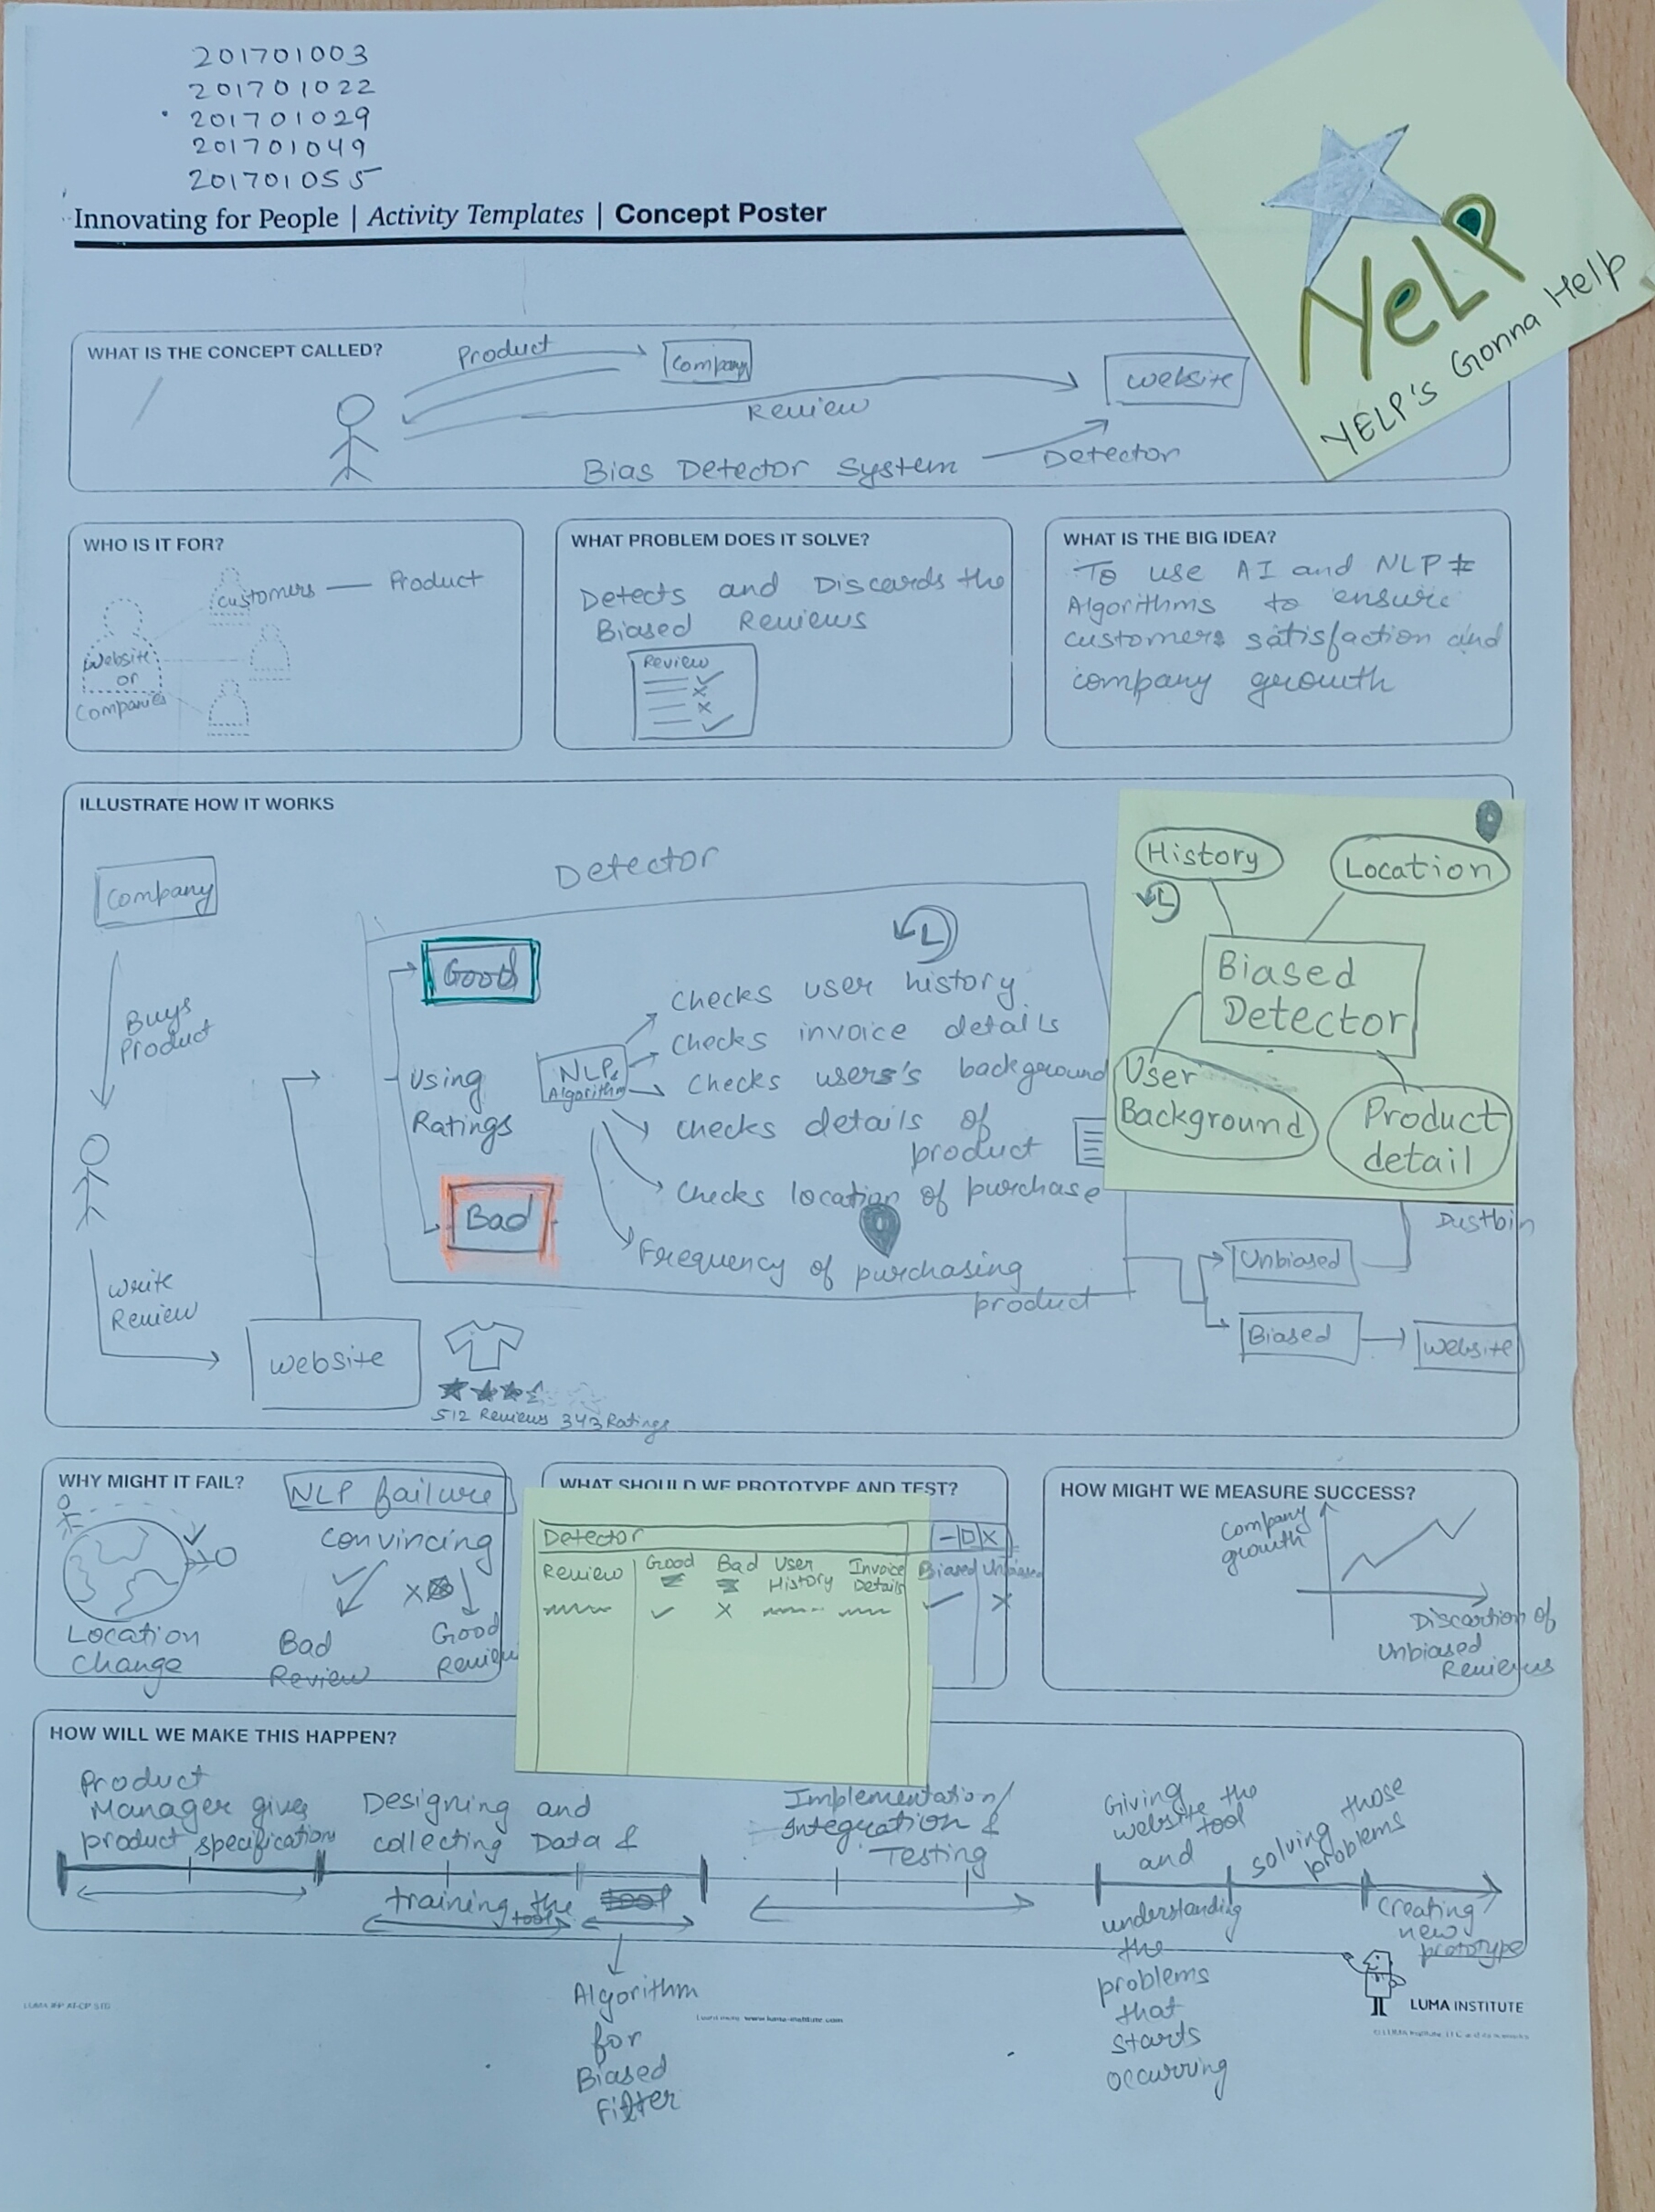 201701003
201701022
201701029
201701049
201701055
Innovating for People | Activity Templates | Concept Poster
YeLP
YELP'S Gonna Help
WHAT IS THE CONCEPT CALLED?
Product
Company
Review
Website
Bias Detector System
Detector
WHO IS IT FOR?
Customers — Product
Website
or
Companies
WHAT PROBLEM DOES IT SOLVE?
Detects and Discards the
Biased Reviews
Review
WHAT IS THE BIG IDEA?
To use AI and NLP
Algorithms to ensure
customers satisfaction and
company growth
ILLUSTRATE HOW IT WORKS
Company
Buys
Product
Write
Review
Website
512 Reviews 343 Ratings
Detector
Good
Using
Ratings
Bad
NLP
Algorithm
Checks user history
Checks invoice details
Checks users's background
Checks details of
product
Checks location of purchase
Frequency of purchasing
product
History
Location
Biased
Detector
User
Background
Product
detail
Dustbin
Unbiased
Biased
Website
WHY MIGHT IT FAIL?
NLP failure
Convincing
Location
Change
Bad
Review
Good
Review
WHAT SHOULD WE PROTOTYPE AND TEST?
Detector
Review Good Bad User History Invoice Details Biased Unbiased
HOW MIGHT WE MEASURE SUCCESS?
Company
growth
Discartion of
Unbiased
Reviews
HOW WILL WE MAKE THIS HAPPEN?
Product
Manager gives
product specification
Designing and
collecting Data &
training the
tool
Algorithm
for
Biased
Filter
Implementation/
Integration &
Testing
Giving
website the
tool
and
understanding
the
problems
that
starts
occurring
solving those
problems
Creating
new
prototype
LUMA INSTITUTE
www.luma-institute.com